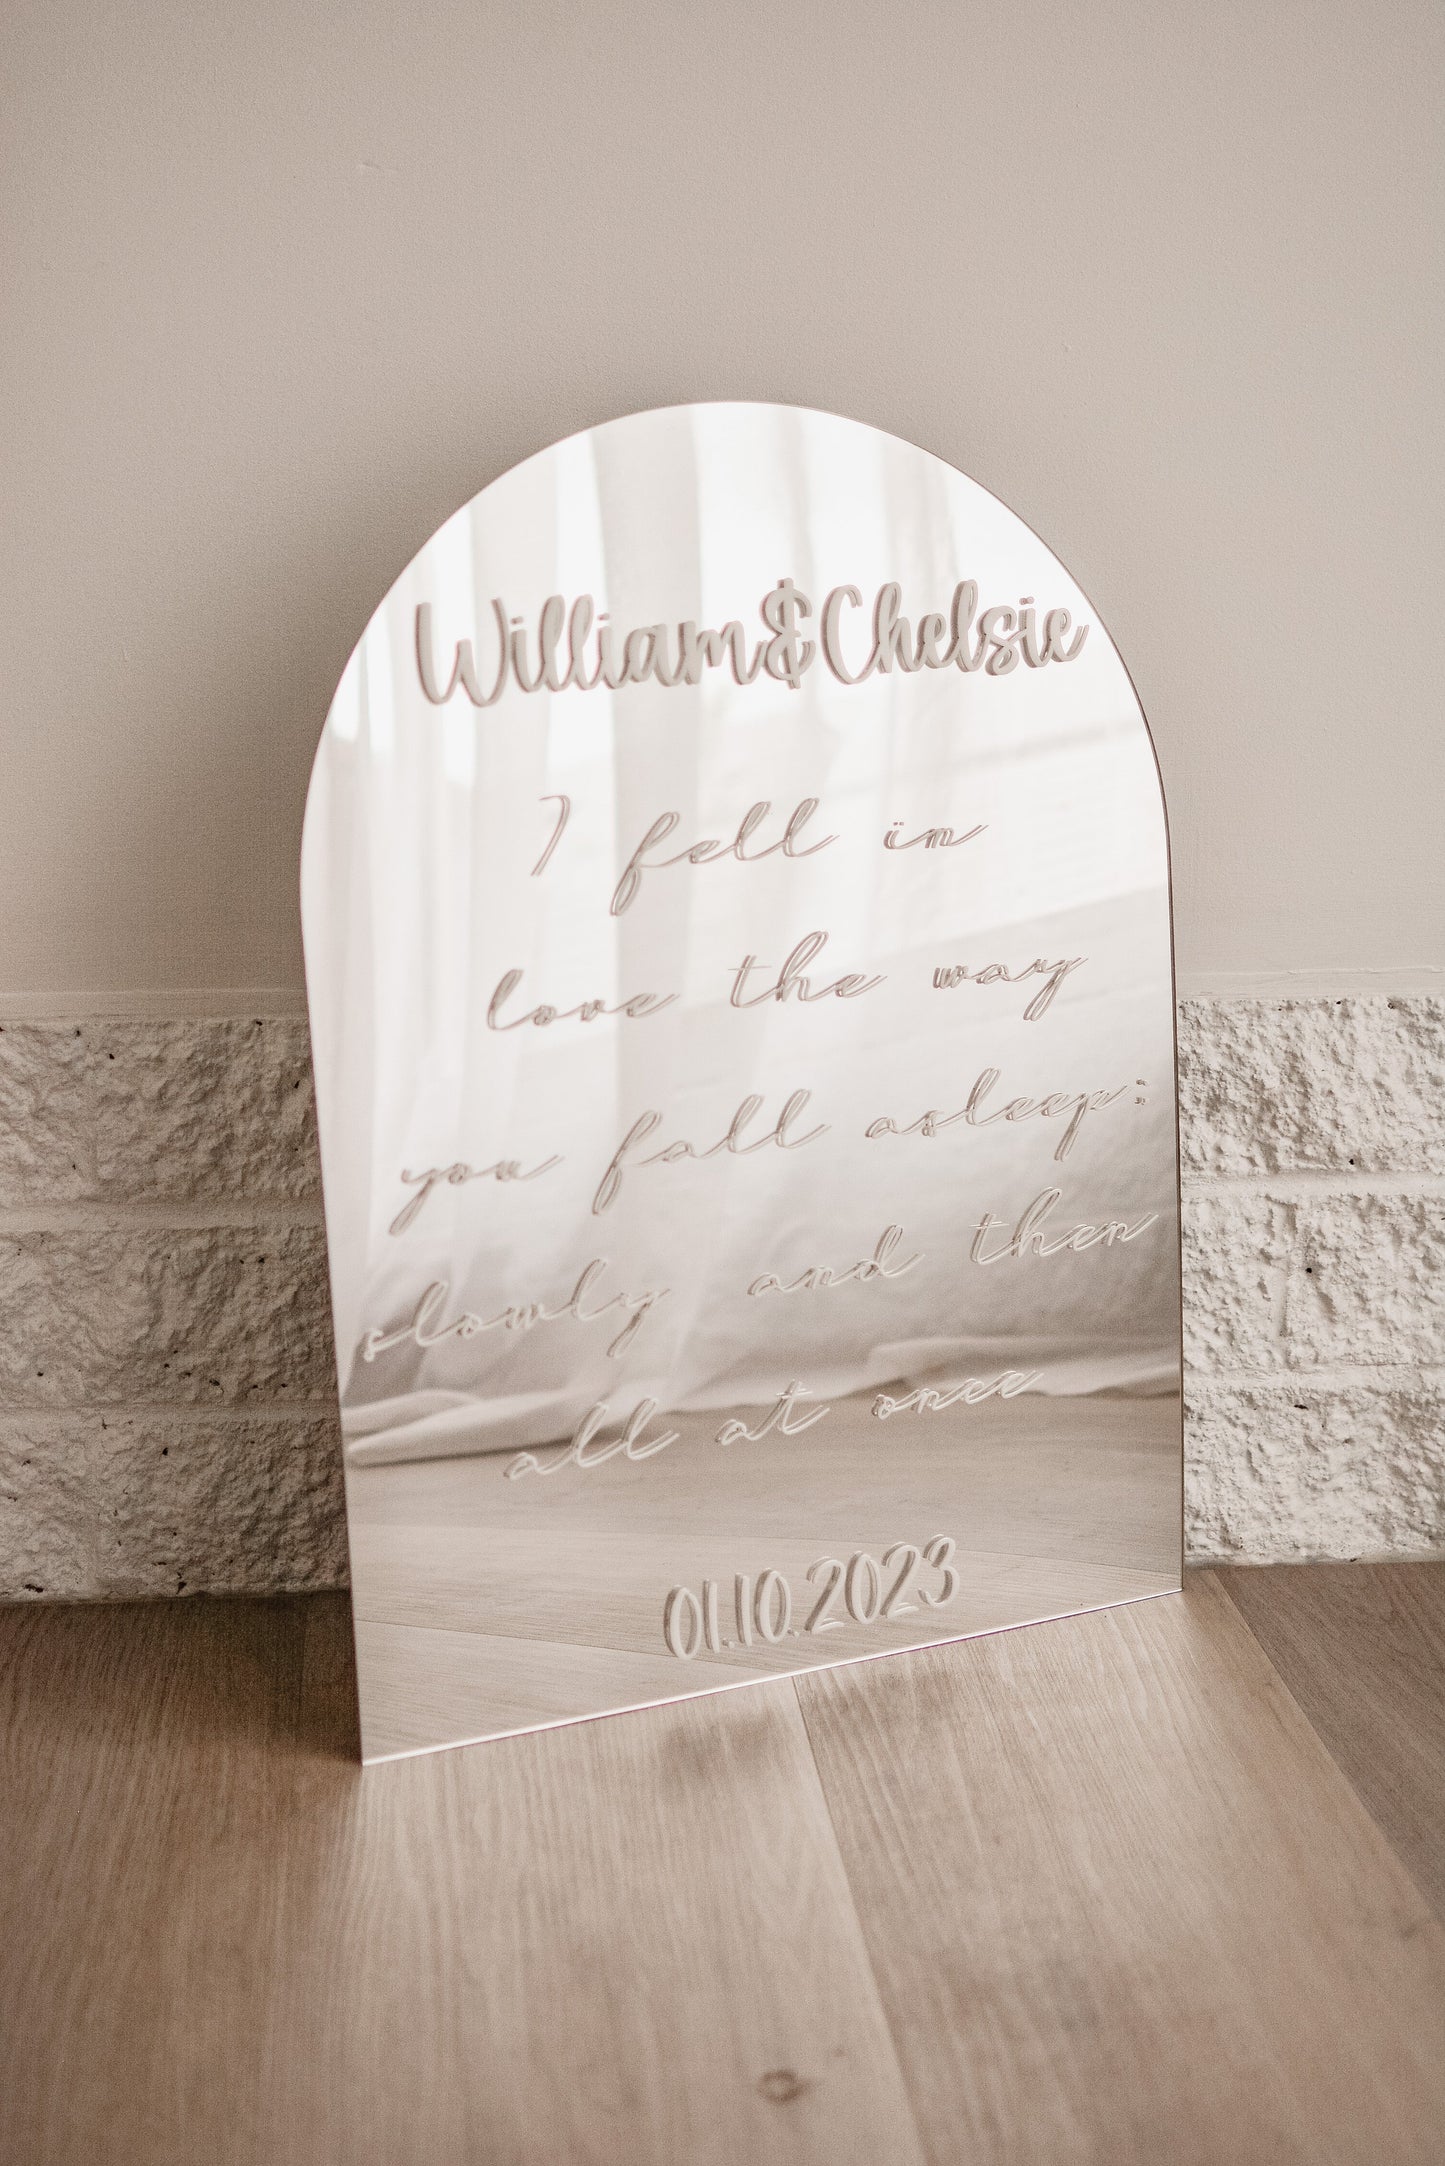 William & Chelsie
I fell in
love the way
you fall asleep:
slowly and then
all at once
01.10.2023